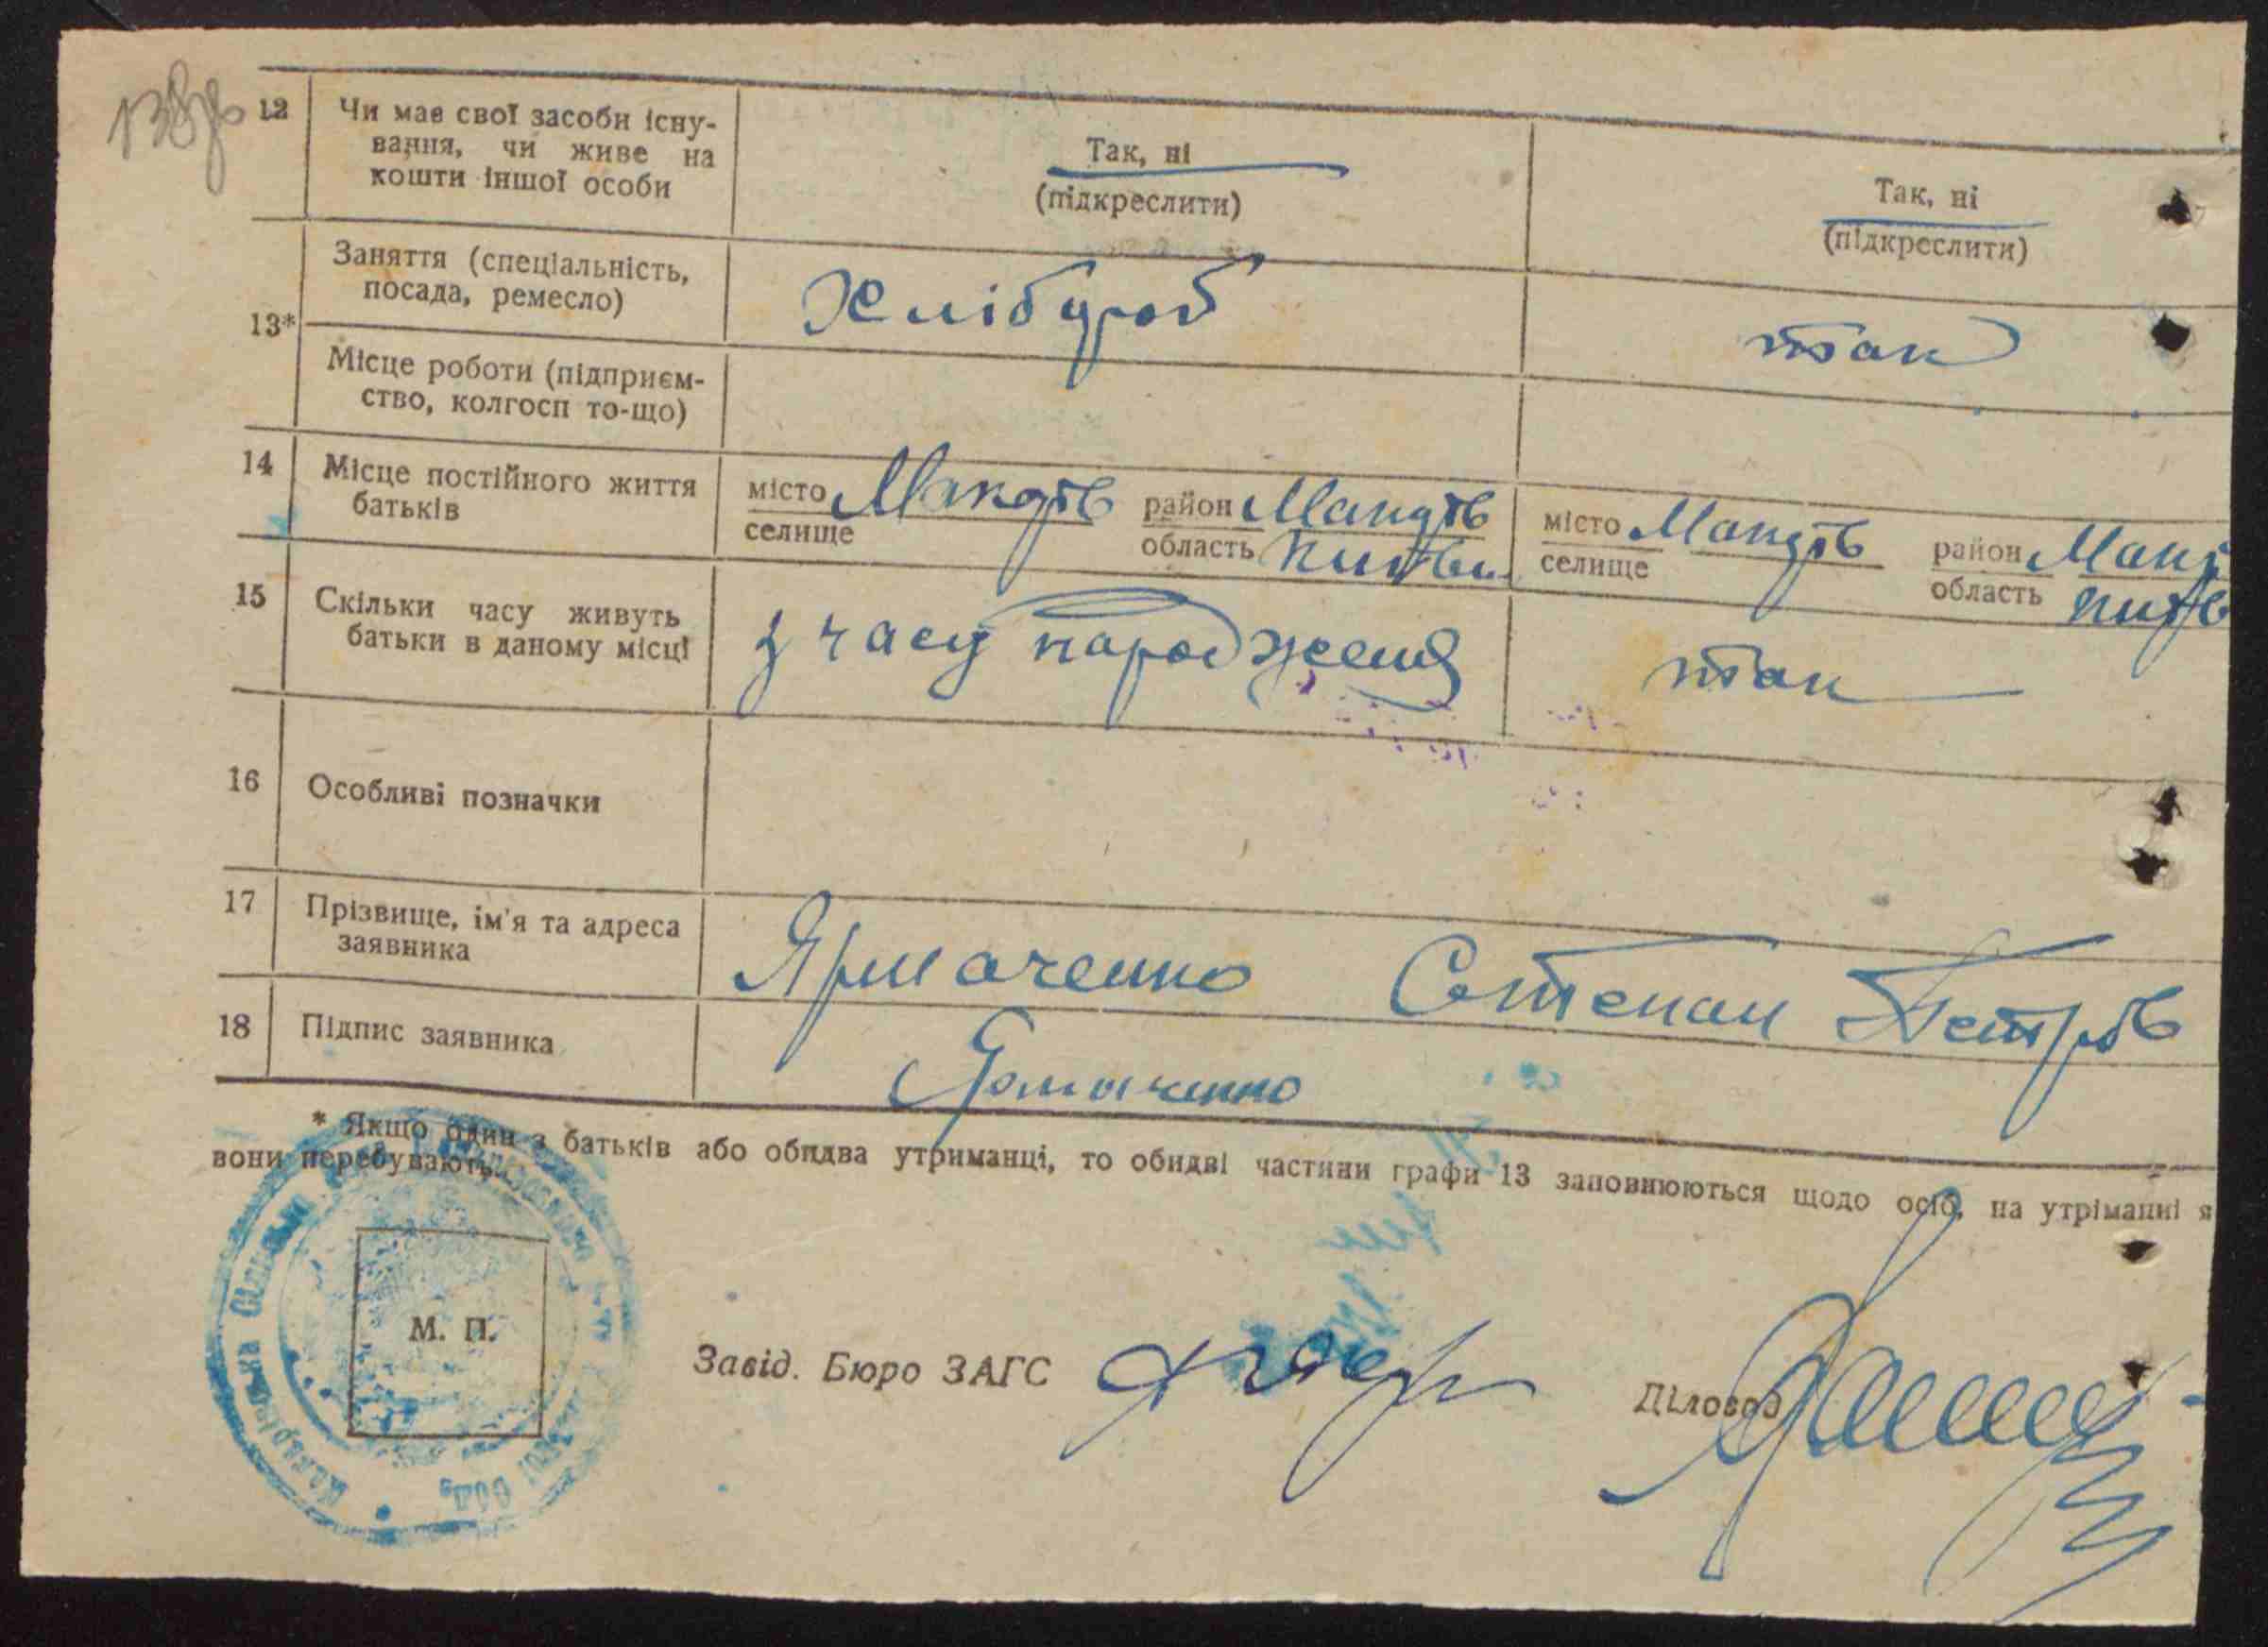 138
12 Чи має свої засоби існу-
вання, чи живе на
кошти іншої особи
Так, ні
(підкреслити)
Так, ні
(підкреслити)
13*
Заняття (спеціальність,
посада, ремесло)
Хлібороб
так
Місце роботи (підприєм-
ство, колгосп то-що)
14 Місце постійного життя
батьків
місто
селище
район
область
місто
селище
район
область
15 Скільки часу живуть
батьки в даному місці
з часу народження
так
16 Особливі позначки
17 Прізвище, ім'я та адреса
заявника
Ярмаченко Степан Петров
18 Підпис заявника
Ярмаченко
* Якщо один з батьків або обидва утриманці, то обидві частини графи 13 заповнюються щодо осіб, на утріманні я
вони перебувають.
М. П.
Завід. Бюро ЗАГС
Діловод